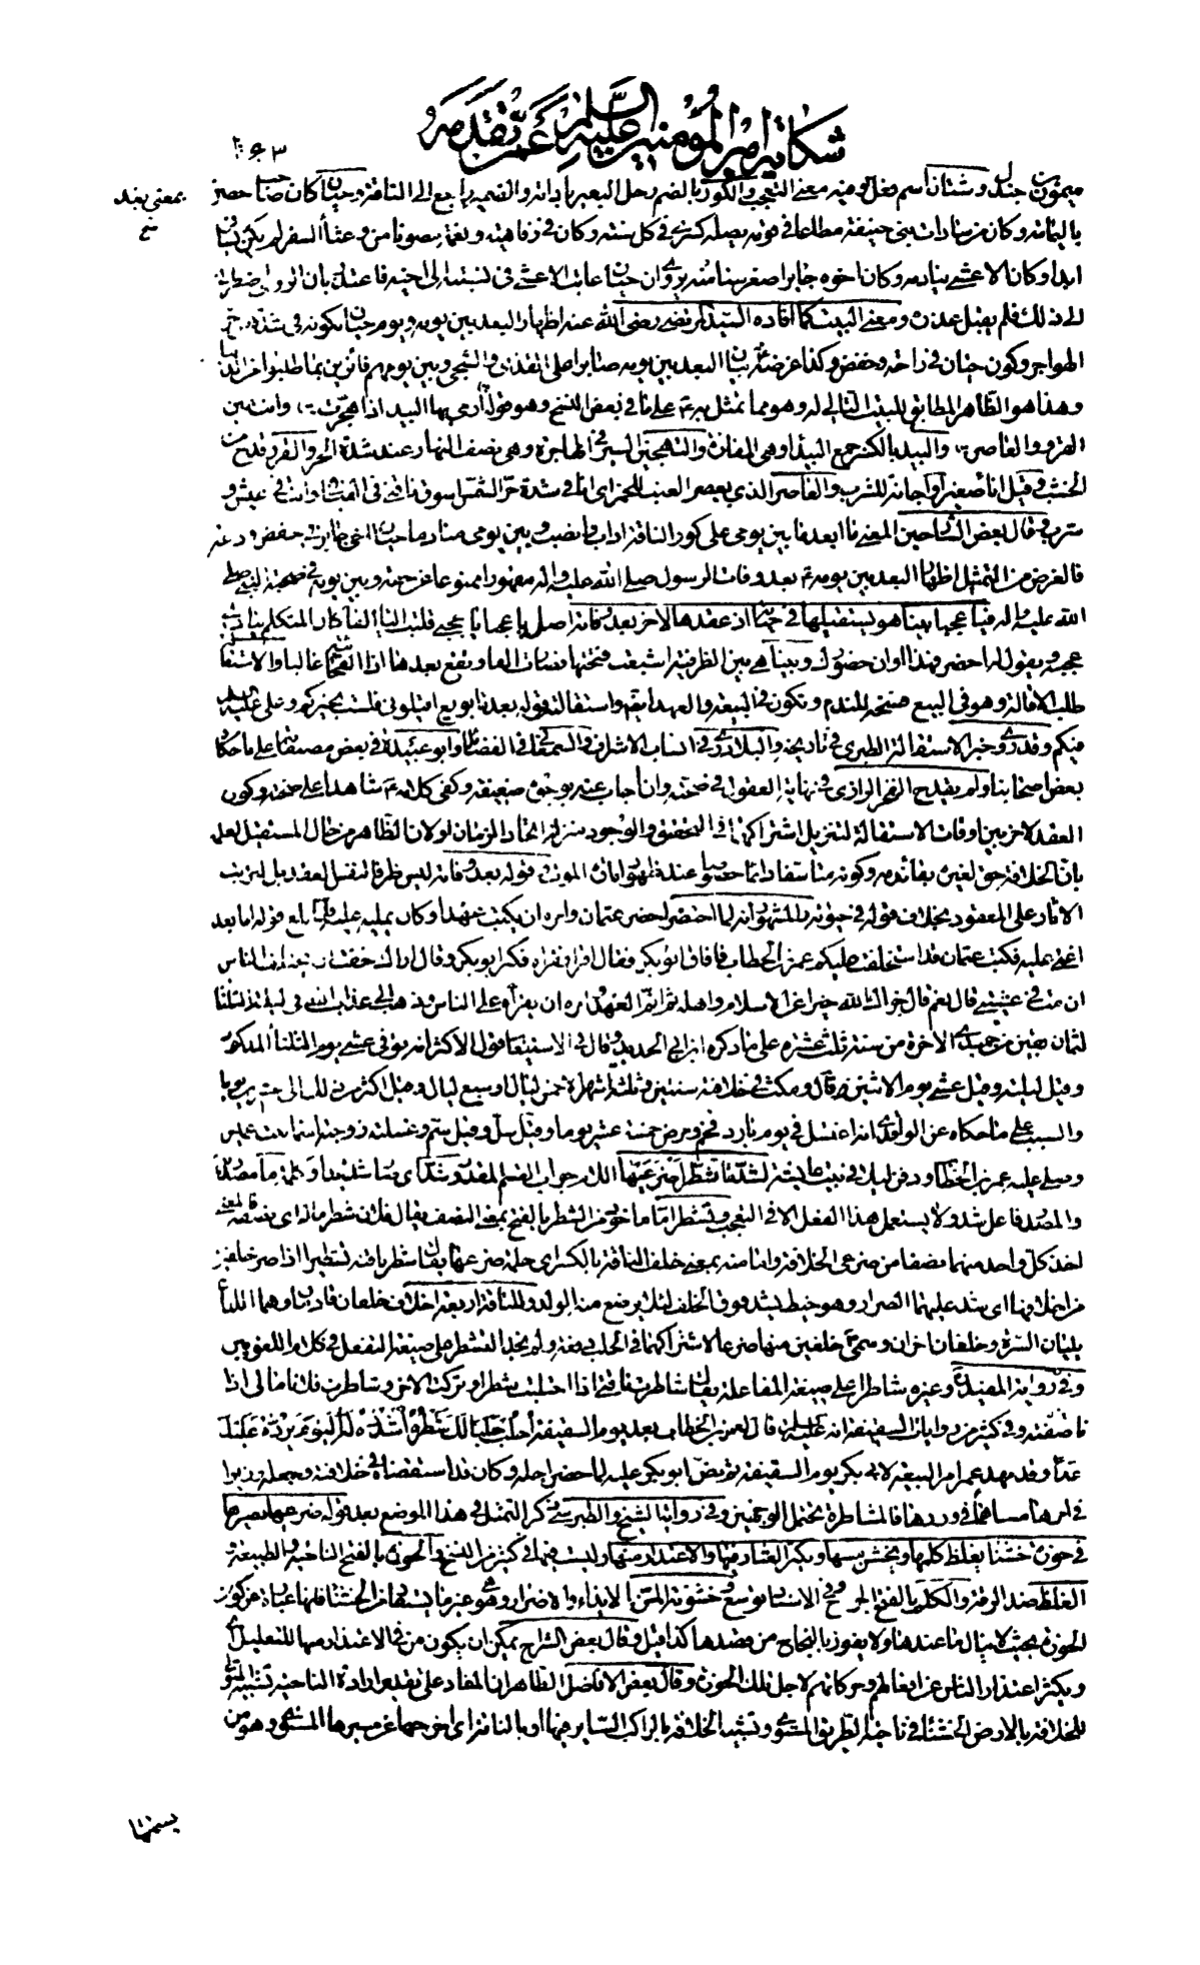 شكاية امير المؤمنين عليه السلم عمن تقدمه
١٦٣
ميمون بن جندل وشتان اسم فعل وفيه معنى التعجب والكور بالضم رحل البعير بأداته والضمير راجع الى الناقة وحيان كان صاحب حصن
بمعنى بعد
باليمامة وكان من سادات بني حنيفة مطاعا في قومه يصله كسرى في كل سنة وكان في رفاهية ونعمة مصونا من وعثاء السفر لم يكن يسافر
ابدا وكان الاعشى ينادمه وكان اخوه جابر اصغر سنا منه يروى ان حيان عاتب الاعشى في نسبته الى اخيه فاعتذر بان الروى اضطرني
الى ذلك فلم يقبل عذره ومعنى البيت كما افاده السيد المرتضى رضي الله عنه اظهار البعد بين يومه ويوم حيان لكونه في شدة من حر
الهواجر وكون حيان في راحة وخفض وكذا غرضه بيان البعد بين يومه صابرا على القذى والشجى وبين يومهم فائزين بما طلبوا من الدنيا
وهذا هو الظاهر المطابق للبيت التالي له وهو مما تمثل به ع على ما في بعض النسخ وهو قوله أرمي بها البيد اذا هجرت وانت بين
القرو والعاصر والبيد بالكسر جمع البيداء وهي المفازة والتهجير السير في الهاجرة وهي نصف النهار عند شدة الحر والقرو قدح من
الخشب وقيل اناء صغير او اجانة للشرب والعاصر الذي يعصر العنب للخمر اي انا في شدة حر الشمس اسوق ناقتي في الفيافي وانت في عيش و
شرب وقال بعض الشارحين المعنى ما ابعد ما بين يومي على كور الناقة ادأب وانصب وبين يومي منادما حيان اخي جابر في خفض ودعة
فالغرض من التمثل اظهار البعد بين يومه ع بعد وفات الرسول صلى الله عليه واله مقهورا ممنوعا عن حقه وبين يومه في صحبة النبي صلى
الله عليه واله فيا عجبا بينا هو يستقيلها في حياته اذ عقدها لاخر بعد وفاته اصل يا عجبا يا عجبي قلبت الياء الفا كان المتكلم ينادي
عجبه ويقول له احضر فهذا اوان حضورك وبينا هي بين الظرفية اشبعت فتحتها فصارت الفا وتقع بعدها اذا الفجائية غالبا والاستقالة
طلب الاقالة وهو في البيع فسخه للندم وتكون في البيعة والعهد ايضا واستقالته قوله بعد ما بويع اقيلوني فلست بخيركم وعلي عليه السلم
فيكم وقد روى خبر الاستقالة الطبري في تاريخه والبلاذري في انساب الاشراف والسمعاني في الفضائل وابو عبيدة في بعض مصنفاته على ما حكاه
بعض اصحابنا ولم يقدح الفخر الرازي في نهاية العقول في صحته وان اجاب عنه بوجوه ضعيفة وكفى كلامه ع شاهدا على صحته وكون
العقد لاخر بين اوقات الاستقالة لتنزيل اشتراكهما في التحقق والوجود منزلة اتحاد الزمان او لان الظاهر من حال المستقيل لعلمه
بان الخلافة حق لغيره بقاء ندمه وكونه متأسفا دائما خصوصا عند ظهور امارة الموت وقوله بعد وفاته ليس ظرفا لنفس العقد بل لترتب
الاثار على المعقود بخلاف قوله في حيوته والمشهور انه لما احتضر احضر عثمان وامره ان يكتب عهدا وكان يمليه عليه فلما بلغ قوله اما بعد
اغمي عليه فكتب عثمان قد استخلفت عليكم عمر بن الخطاب فافاق ابو بكر وقال اقرأ فقرأه فكبر ابو بكر وقال اراك خفت ان يختلف الناس
ان مت في غشيتي قال نعم قال جزاك الله خيرا عن الاسلام واهله ثم اتم العهد وامره ان يقرأه على الناس وذهب الى عذاب الله في ليلة الثلثاء
لثمان بقين من جميدى الاخرة من سنة ثلث عشرة على ما ذكره ابن ابي الحديد وقال في الاستيعاب قول الاكثر انه توفي عشى يوم الثلثاء المذكور
وقيل ليلته وقيل عشى يوم الاثنين قال ومكث في خلافته سنتين وثلثة اشهر الا خمس ليال او سبع ليال وقيل اكثر من ذلك الى عشرين يوما
والسبب على ما حكاه عن الواقدي انه اغتسل في يوم بارد فحم ومرض خمسة عشر يوما وقيل سل وقيل سم وغسلته زوجته اسماء بنت عميس
وصلى عليه عمر بن الخطاب ودفن ليلا في بيت عايشة لشد ما تشطرا ضرعيها اللام جواب القسم المقدر وشد اي صار شديدا وكلمة ما مصدرية
والمصدر فاعل شد ولا يستعمل هذا الفعل الا في التعجب وتشطرا اما ماخوذ من الشطر بالفتح بمعنى النصف يقال فلان شطر ماله اي نصفه فالمعنى
اخذ كل واحد منهما نصفا من ضرعي الخلافة واما منه بمعنى خلف الناقة بالكسر اي حلمة ضرعها يقال شطر ناقته تشطيرا اذا صر خلفين
من اخلافها اي شد عليهما الصرار وهو خيط يشد فوق الخلف لئلا يرضع منه الولد وللناقة اربعة اخلاف خلفان قادمان وهما اللذان
يليان السرة وخلفان اخران وسمى ع خلفين منها ضرعا لاشتراكهما في الحلب دفعة ولم نجد التشطر على صيغة التفعل في كلام اللغويين
وفي رواية المفيد وغيره شاطرا على صيغة المفاعلة يقال شاطرت ناقتي اذا احتلبت شطرا وتركت الاخر وشاطرت فلانا مالي اذا
ناصفته وفي كثير من روايات السقيفة انه عليه السلم قال لعمر بن الخطاب بعد يوم السقيفة احلب حلبا لك شطره اشدد له اليوم يرده عليك
غدا وقد مهد عمر امر البيعة لابي بكر يوم السقيفة ثم نص ابو بكر عليه لما حضر اجله وكان قد استقضاه في خلافته وجعله وزيرا
في امرها مساهما في وزرها فالمشاطرة تحتمل الوجهين وفي رواية الشيخ والطبرسي ذكر التمثل في هذا الموضع بعد قوله ضرعيها فصيرها
في حوزة خشناء يغلظ كلمها ويخشن مسها ويكثر العثار فيها والاعتذار منها وليست فيها في كثير من النسخ والحوزة بالفتح الناحية والطبيعة و
الغلظ ضد الرقة والكلم بالفتح الجرح وفي الاسناد توسع وخشونة المس الايذاء والاضرار وهو غير ما يستفاد من الخشناء فانها عبارة عن كون
الحوزة بحيث لا ينال ما عندها ولا يفوز بالنجاح من قصدها كذا قيل وقال بعض الشراح يمكن ان يكون من في الاعتذار منها للتعليل اي
ويكثر اعتذار الناس عن افعالهم وحركاتهم لاجل تلك الحوزة وقال بعض الافاضل الظاهر ان المفاد على تقدير ارادة الناحية تشبيه المتولي
للخلافة بالارض الخشناء في ناحية الطريق المستوي وتشبيه الخلافة بالراكب الساير فيها او بالناقة اي اخرجها عن مسيرها المستوي وهو من
يستحقها